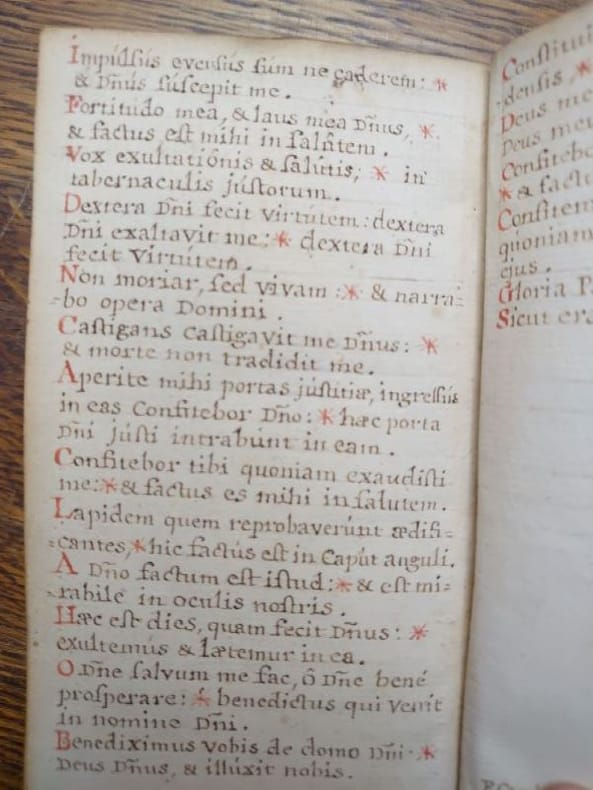 Impulsus eversus sum ne caderem: *
& Dñus suscepit me.
Fortitudo mea, & laus mea Dñus, *
& factus est mihi in salutem.
Vox exultatiónis & salútis, * in
tabernaculis justorum.
Dextera Dñi fecit virtútem: dextera
Dñi exaltavit me: * dextera Dñi
fecit virtutem.
Non moriar, sed vivam: * & narra=
=bo opera Domini.
Castigans castigavit me Dñus: *
& morte non tradidit me.
Aperite mihi portas justitiæ, ingressus
in eas confitebor Dño: * hæc porta
Dñi justi intrabunt in eam.
Confitebor tibi quoniam exaudisti
me: * & factus es mihi in salutem.
Lapidem quem reprobaverunt ædifi=
=cantes, * hic factus est in caput anguli.
A Dño factum est istud: * & est mi=
=rabile in oculis nostris.
Hæc est dies, quam fecit Dñus: *
exultemus & lætemur in ea.
O Dñe salvum me fac, ô Dñe bené
prosperare: * benedictus qui venit
in nomine Dñi.
Benediximus vobis de domo Dñi. *
Deus Dñus, & illúxit nobis.
Constitui
densis, *
Deus me
Deus meu
Confitebo
* & factu
Confitem
quoniam
ejus.
Gloria P
Sicut era